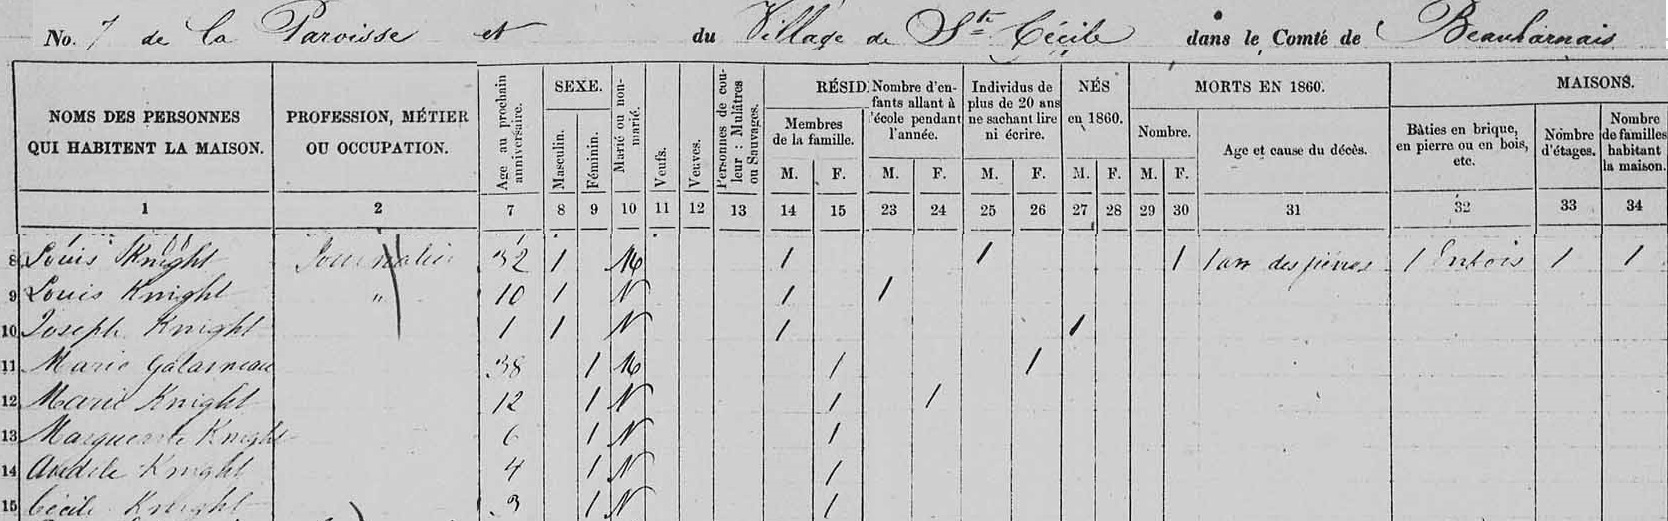 No. 7 de La Paroisse et du Village de Ste Cécile dans le Comté de Beauharnais
NOMS DES PERSONNES QUI HABITENT LA MAISON.
PROFESSION, MÉTIER OU OCCUPATION.
Age au prochain anniversaire.
SEXE.
Masculin.
Féminin.
Marié ou non-marié.
Veufs.
Veuves.
Personnes de couleur: Mulâtres ou Sauvages.
RÉSID.
Membres de la famille.
M. F.
Nombre d'enfants allant à l'école pendant l'année.
M. F.
Individus de plus de 20 ans ne sachant lire ni écrire.
M. F.
NÉS en 1860.
M. F.
MORTS EN 1860.
Nombre.
M. F.
Age et cause du décès.
MAISONS.
Bâties en brique, en pierre ou en bois, etc.
Nombre d'étages.
Nombre de familles habitant la maison.
1 2 7 8 9 10 11 12 13 14 15 23 24 25 26 27 28 29 30 31 32 33 34
8 Louis Knight Journalier 32 1 M 1 1 1 1 an des fièvres 1 En bois 1 1
9 Louis Knight " 10 1 N 1 1
10 Joseph Knight 1 1 N 1 1
11 Marie Galarneau 38 1 M 1 1
12 Marie Knight 12 1 N 1 1
13 Marguerite Knight 6 1 N 1
14 Knight 4 1 N 1
15 Cécile Knight 3 1 N 1